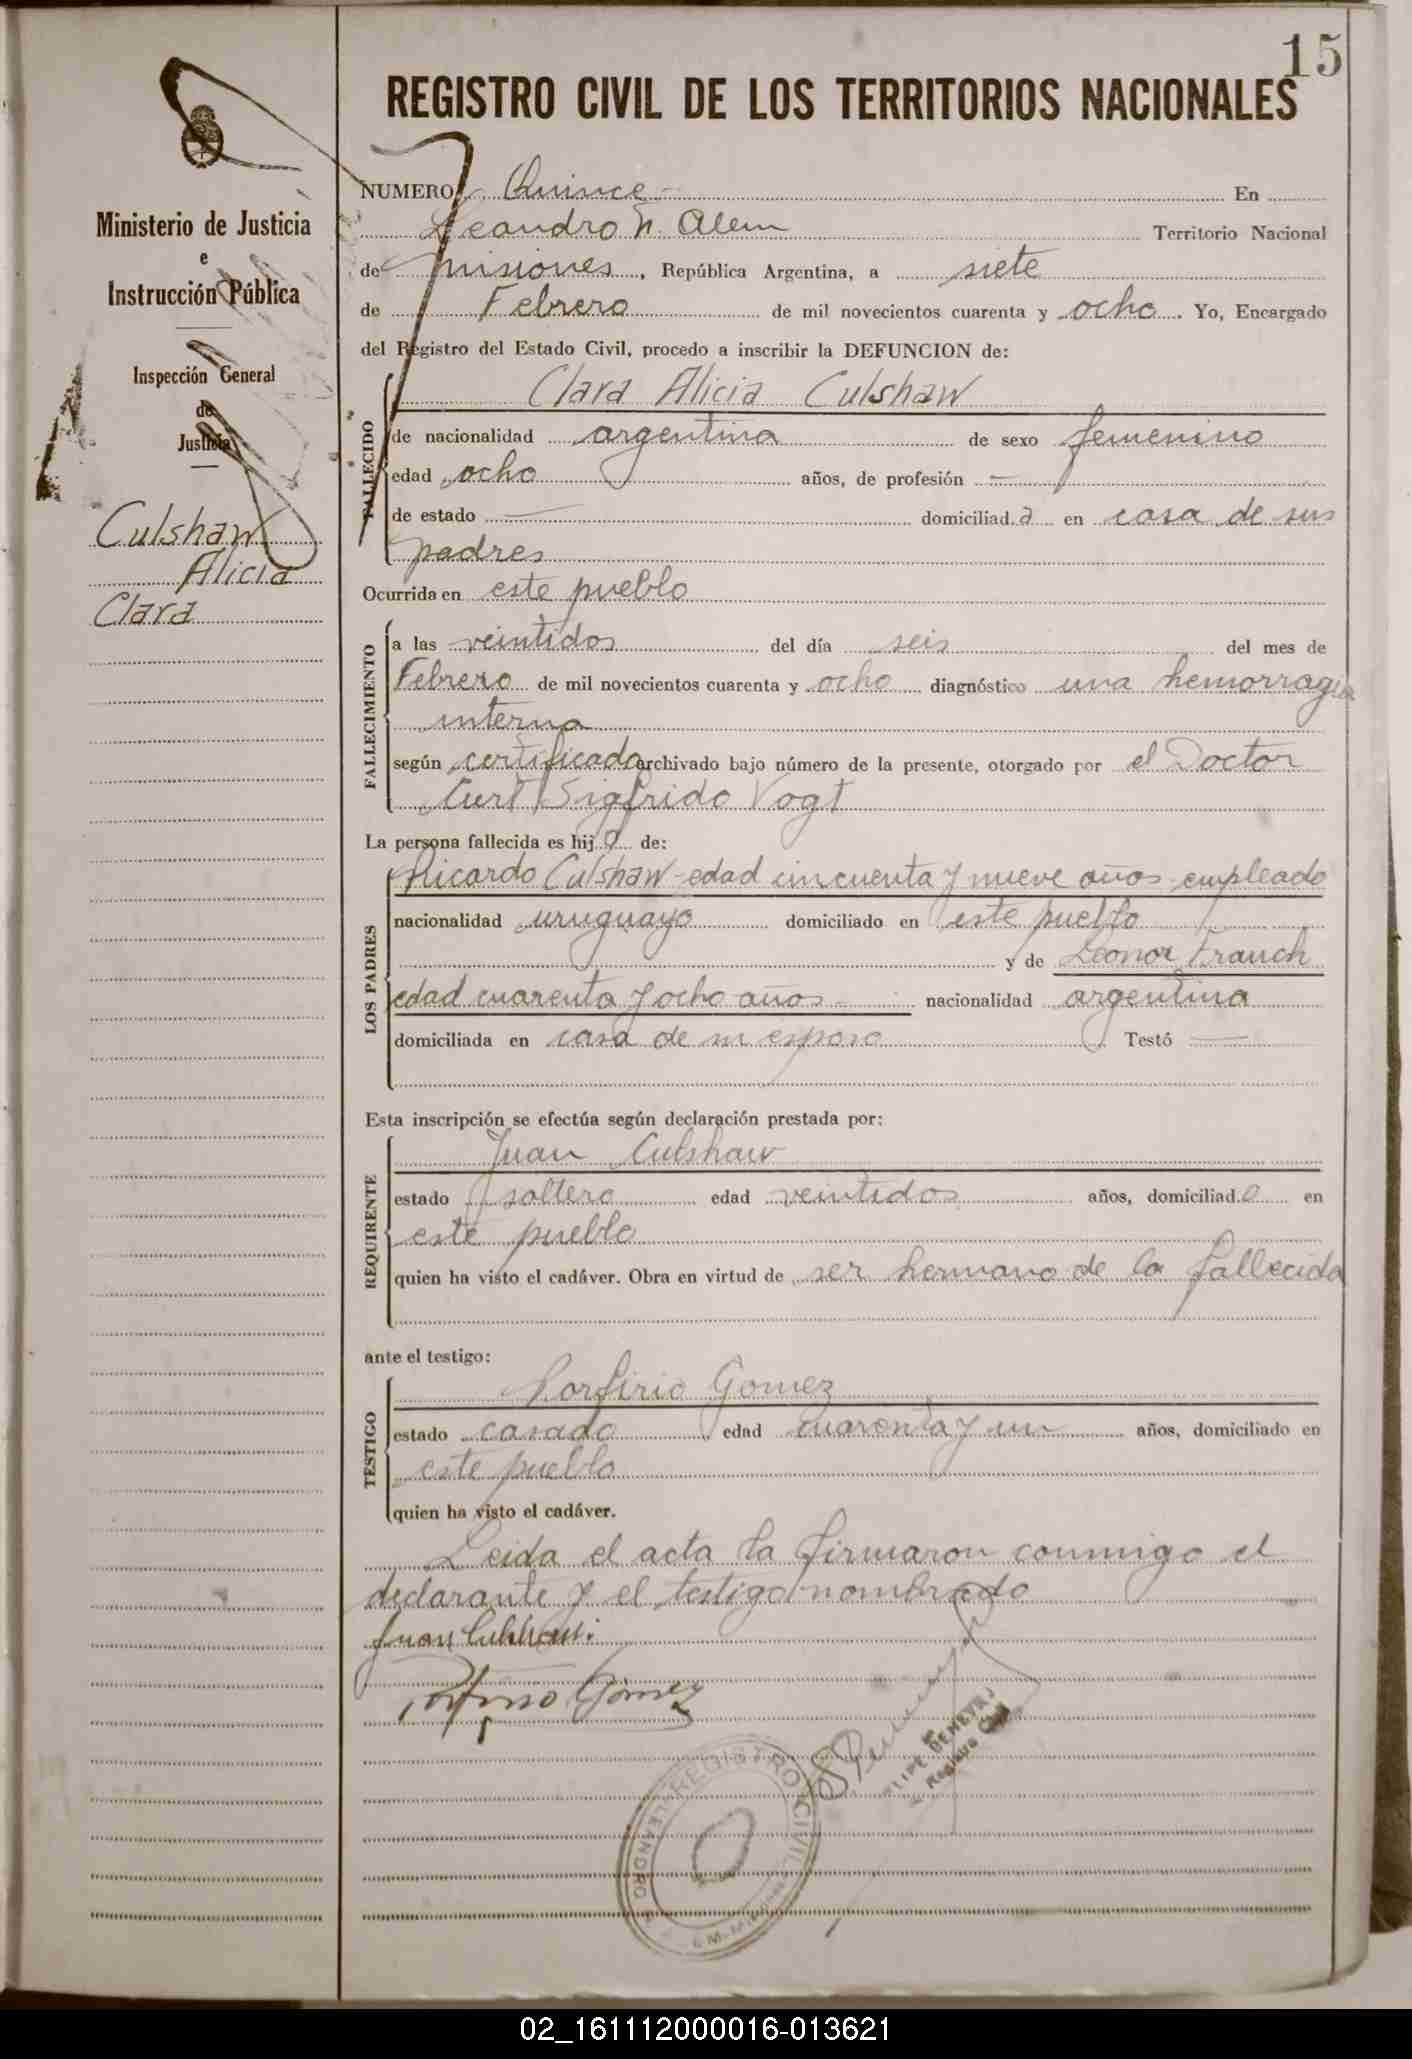 15
REGISTRO CIVIL DE LOS TERRITORIOS NACIONALES
Ministerio de Justicia
e
Instrucción Pública
Inspección General
de
Justicia
Culshaw
Alicia
Clara
NUMERO Quince En
Leandro N. Alem Territorio Nacional
de misiones, República Argentina, a siete
de Febrero de mil novecientos cuarenta y ocho. Yo, Encargado
del Registro del Estado Civil, procedo a inscribir la DEFUNCION de:
FALLECIDO
Clara Alicia Culshaw
de nacionalidad argentina de sexo femenino
edad ocho años, de profesión —
de estado — domiciliad.a en casa de sus
padres
Ocurrida en este pueblo
FALLECIMIENTO
a las veintidos del día seis del mes de
Febrero de mil novecientos cuarenta y ocho diagnóstico una hemorragia
interna
según certificado archivado bajo número de la presente, otorgado por el Doctor
Curt Sigfrido Vogt
La persona fallecida es hij a de:
LOS PADRES
Ricardo Culshaw - edad cincuenta y nueve años - empleado
nacionalidad uruguayo domiciliado en este pueblo
y de Leonor Franch
edad cuarenta y ocho años - nacionalidad argentina
domiciliada en casa de su esposo Testó —
Esta inscripción se efectúa según declaración prestada por:
REQUIRENTE
Juan Culshaw
estado soltero edad veintidos años, domiciliad.o en
este pueblo
quien ha visto el cadáver. Obra en virtud de ser hermano de la fallecida
ante el testigo:
TESTIGO
Porfirio Gomez
estado casado edad cuarenta y un años, domiciliado en
este pueblo
quien ha visto el cadáver.
Leida el acta la firmaron conmigo el
declarante y el testigo nombrado
Juan Culshaw.
Porfirio Gomez
REGISTRO CIVIL
LEANDRO
02_161112000016-013621